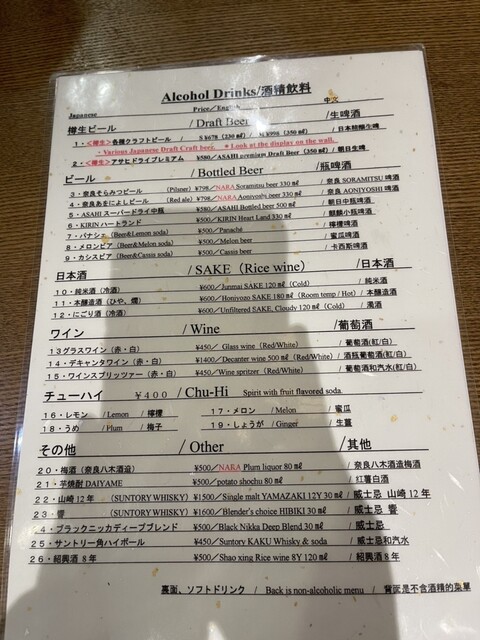 Alcohol Drinks/酒精飲料
Japanese Price／English 中文
樽生ビール / Draft Beer /生啤酒
1・＜樽生＞各種クラフトビール / S¥678 (250㎖) / M¥998 (350㎖) / 日本精釀生啤
・Various Japanese Draft Craft beer. ＊Look at the display on the wall.
2・＜樽生＞アサヒドライプレミアム ¥580／ASAHI premium Draft Beer (350㎖) / 朝日生啤
ビール / Bottled Beer /瓶啤酒
3・奈良そらみつビール (Pilsner) ¥798／NARA Soramitsu beer 330㎖ / 奈良 SORAMITSU 啤酒
4・奈良あをによしビール (Red ale) ¥798／NARA Aoniyoshi beer 330㎖ / 奈良 AONIYOSHI 啤酒
5・ASAHI スーパードライ中瓶 ¥580／ASAHI Bottled beer 500㎖ / 朝日中瓶酒
6・KIRIN ハートランド ¥500／KIRIN Heart Land 330㎖ / 麒麟小瓶啤酒
7・パナシェ (Beer&Lemon soda) ¥500／Panaché / 檸檬啤酒
8・メロンビア (Beer&Melon soda) ¥500／Melon beer / 蜜瓜啤酒
9・カシスビア (Beer&Cassis soda) ¥500／Cassis beer / 卡西斯啤酒
日本酒 / SAKE（Rice wine） /日本酒
10・純米酒（冷酒） ¥600／Junmai SAKE 120㎖ (Cold) / 純米酒
11・本醸造酒（ひや、燗） ¥600／Honjyozo SAKE 180㎖ (Room tomp / Hot) / 本釀造酒
12・にごり酒（冷酒） ¥600／Unfiltered SAKE, Cloudy 120㎖ (Cold) / 濁酒
ワイン / Wine /葡萄酒
13グラスワイン（赤・白） ¥450／ Glass wine (Red/White) / 葡萄酒(紅/白)
14・デキャンタワイン（赤・白） ¥1400／Decanter wine 500㎖ (Red/White) / 酒瓶葡萄酒(紅/白)
15・ワインスプリッツァー（赤・白） ¥450／Wine spritzer (Red/White) / 葡萄酒和汽水(紅/白)
チューハイ ¥400 / Chu-Hi Spirit with fruit flavored soda.
16・レモン /Lemon / 檸檬 17・メロン /Melon / 蜜瓜
18・うめ /Plum / 梅子 19・しょうが / Ginger / 生薑
その他 / Other /其他
20・梅酒（奈良八木酒造） ¥500／NARA Plum liquor 80㎖ / 奈良八木酒造梅酒
21・芋焼酎 DAIYAME ¥500／potato shochu 80㎖ / 紅薯白酒
22・山崎 12年 (SUNTORY WHISKY) ¥1500／Single malt YAMAZAKI 12Y 30㎖ / 威士忌 山崎 12年
23・響 (SUNTORY WHISKY) ¥1600／Blender's choice HIBIKI 30㎖ / 威士忌 響
24・ブラックニッカディープブレンド ¥500／Black Nikka Deep Blend 30㎖ / 威士忌
25・サントリー角ハイボール ¥450／Suntory KAKU Whisky & soda / 威士忌和汽水
26・紹興酒 8年 ¥500／Shao xing Rice wine 8Y 120㎖ / 紹興酒 8年
裏面、ソフトドリンク / Back is non-alcoholic menu / 背面是不含酒精的菜單